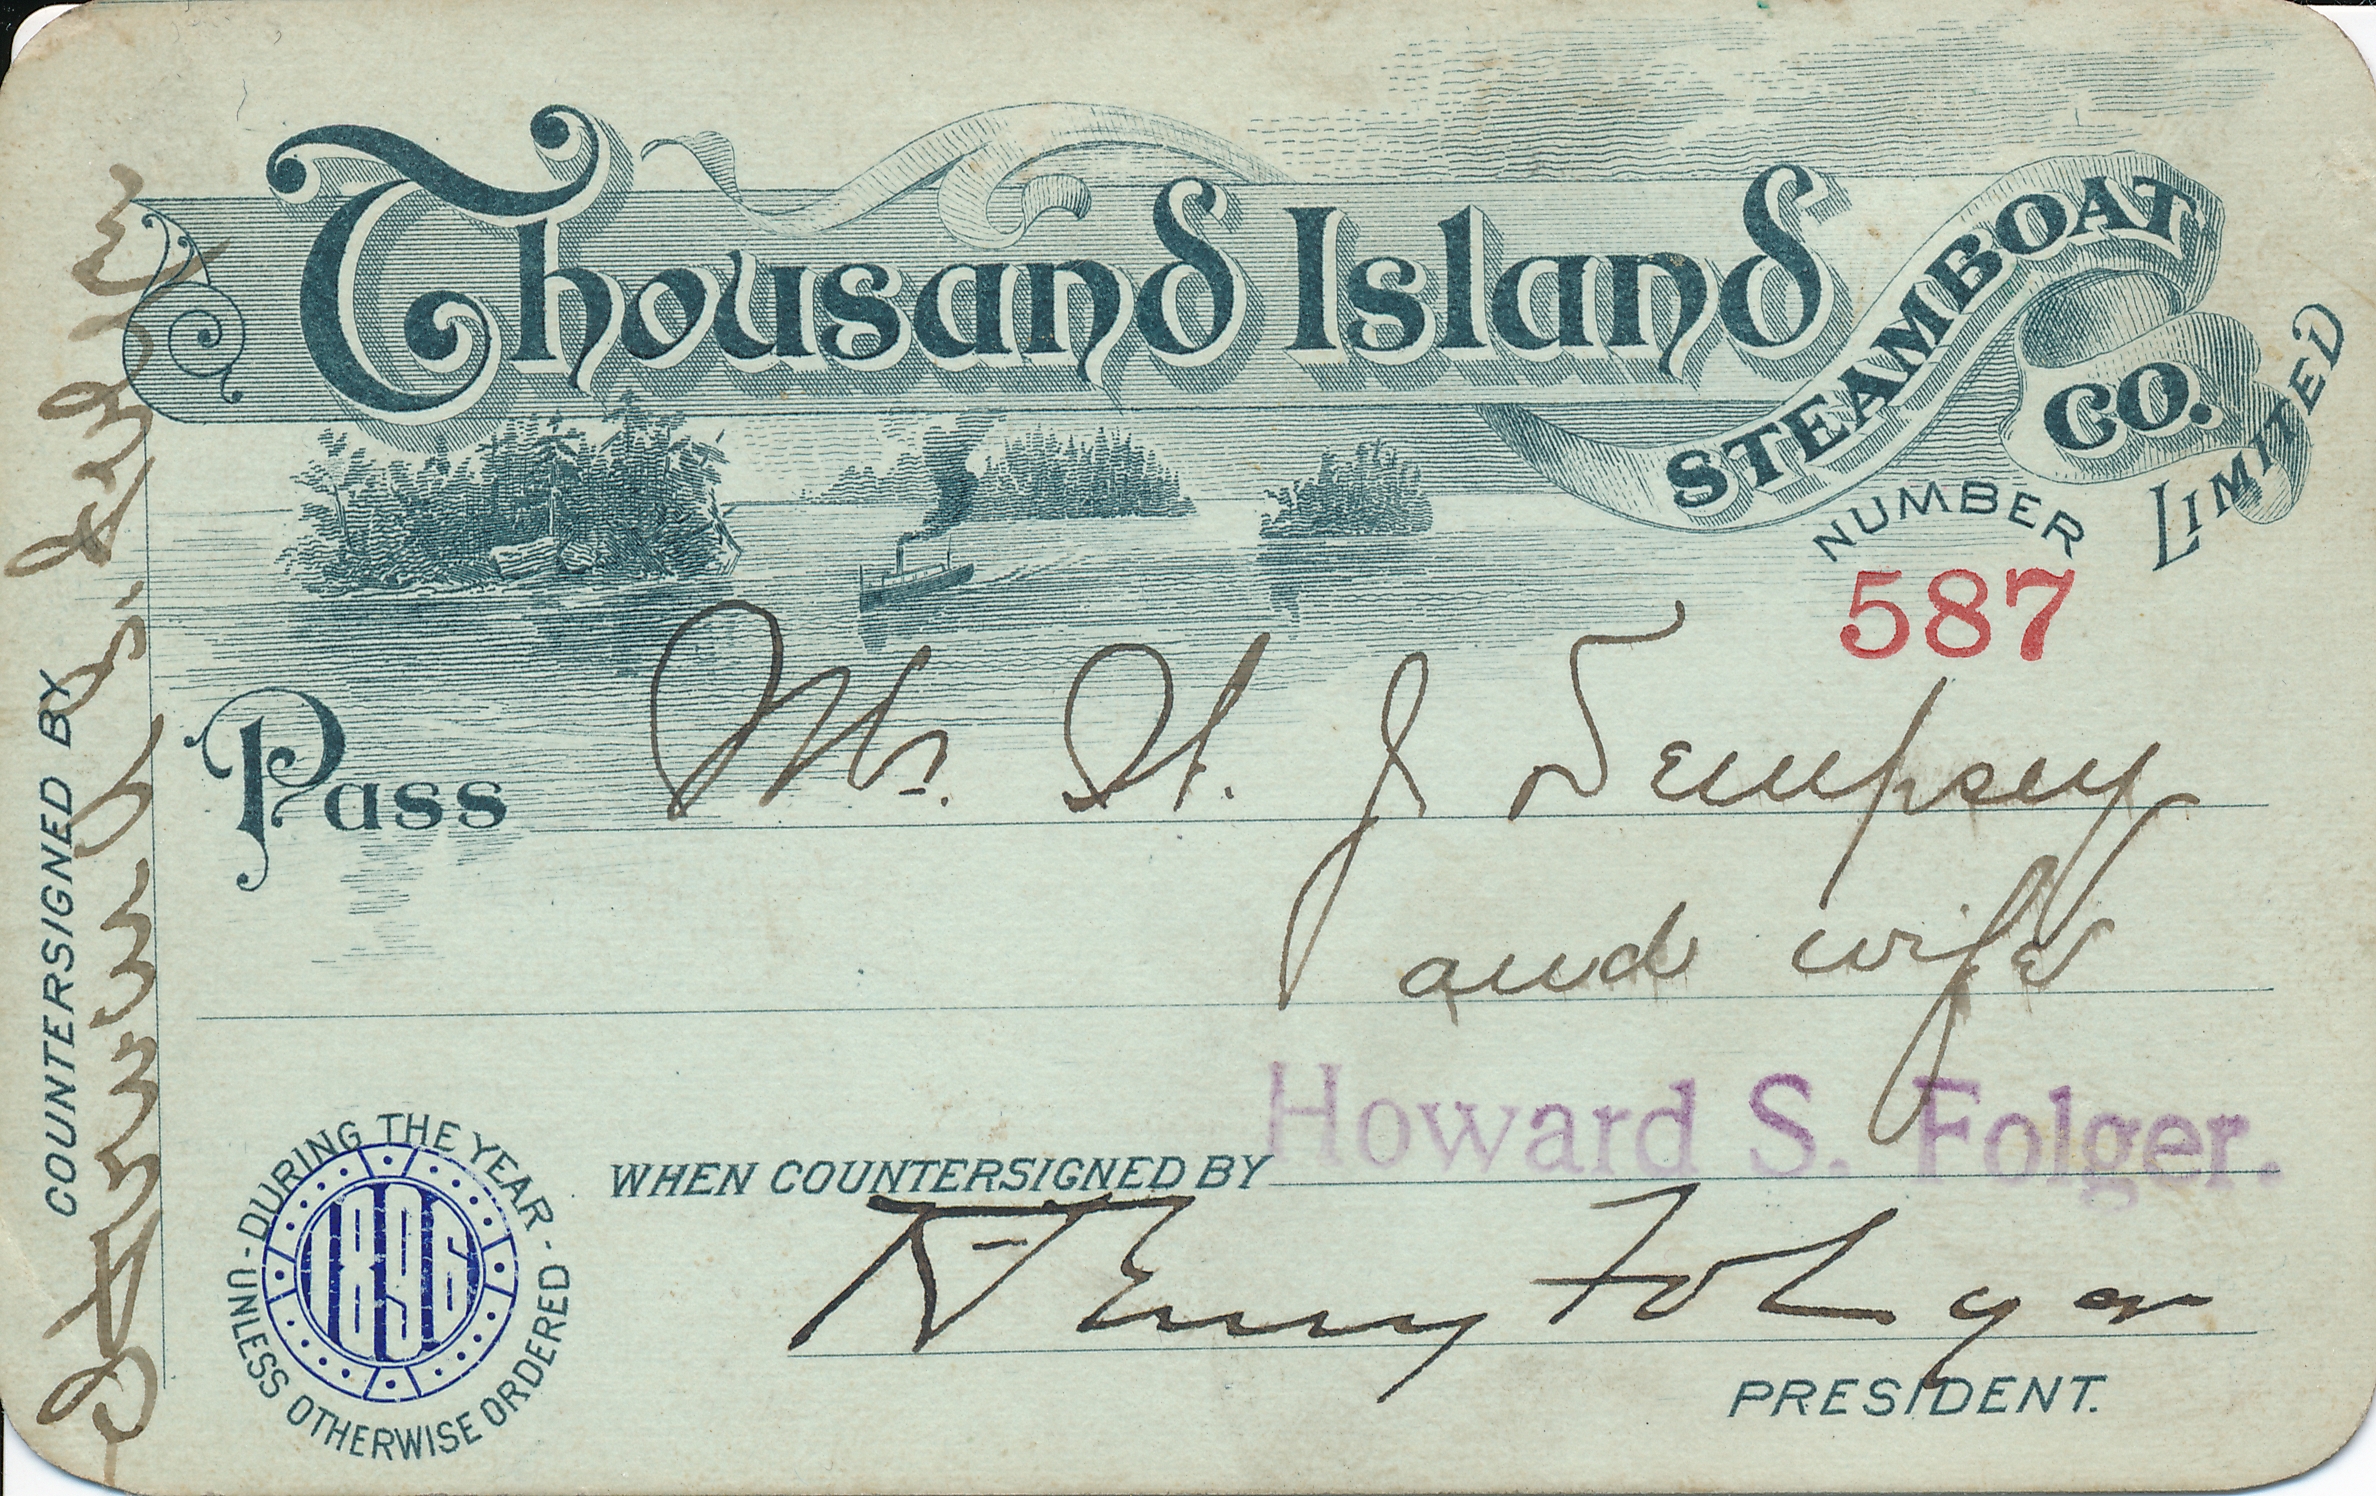 Thousand Island
STEAMBOAT
CO.
LIMITED
NUMBER
587
Pass Mr. H. J Dempsey
and wife
WHEN COUNTERSIGNED BY Howard S. Folger.
Henry Folger
PRESIDENT.
DURING THE YEAR
1896
UNLESS OTHERWISE ORDERED
COUNTERSIGNED BY Howard S. Folger